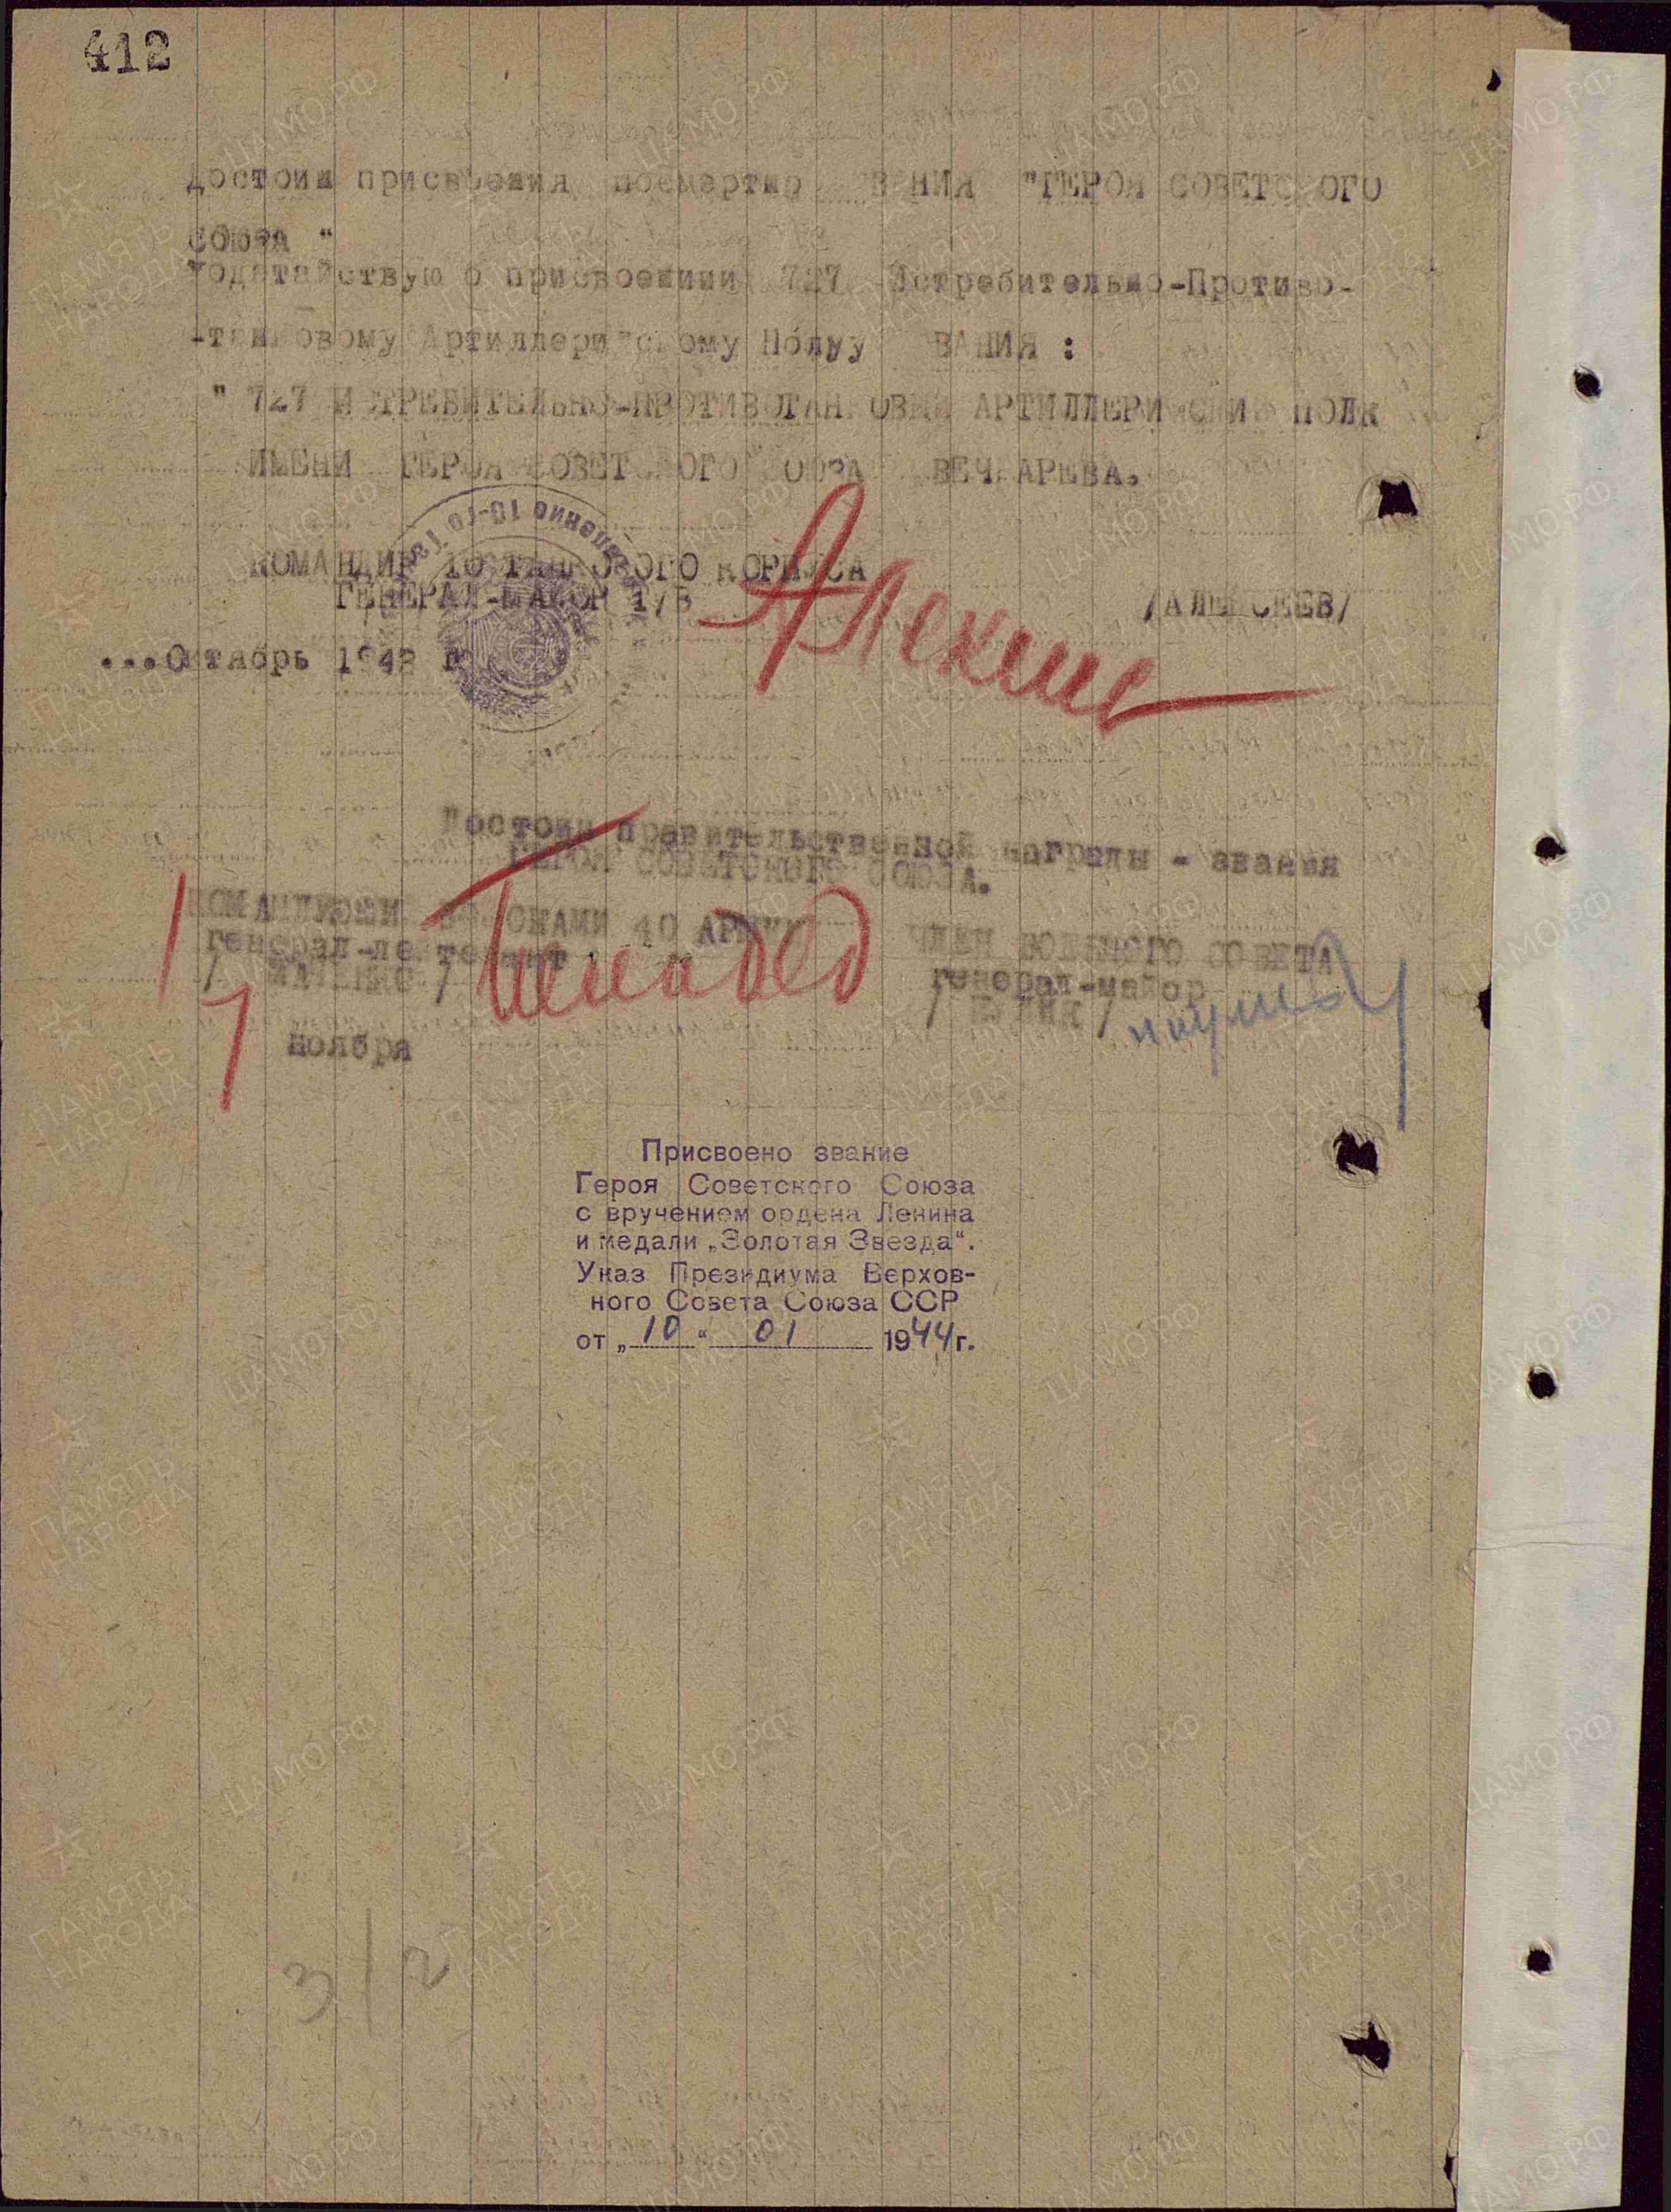 412
достоин присвоения посмертно "ГЕРОЯ СОВЕТСКОГО
СОЮЗА "
Ходатайствую о присвоениии 727 Истребительно-Противо-
-танковому Артиллерийскому Полку ВАНИЯ :
" 727 ИСТРЕБИТЕЛЬНО-ПРОТИВОТАНКОВЫЙ АРТИЛЛЕРИЙСКИЙ ПОЛК
ИМЕНИ ГЕРОЯ СОВЕТСКОГО СОЮЗА ВЕЧ АРЕВА.
КОМАНДИР 10 ТАНКОВОГО КОРПУСА
ГЕНЕРАЛ-МАЙОР Т/В
/АЛЕКСЕЕВ/
...Октябрь 1943 г.
Достоин правительственной награды - звания
ГЕРОЯ СОВЕТСКОГО СОЮЗА.
КОМАНДУЮЩИЙ ВОЙСКАМИ 40 АРМИИ
генерал-лейтенант
ЧЛЕН ВОЕННОГО СОВЕТА
генерал-майор
ноября
Присвоено звание
Героя Советского Союза
с вручением ордена Ленина
и медали „Золотая Звезда“.
Указ Президиума Верхов-
ного Совета Союза ССР
от „10“ 01 1944г.
3/2
ЦАМО.РФ
ПАМЯТЬ
НАРОДА